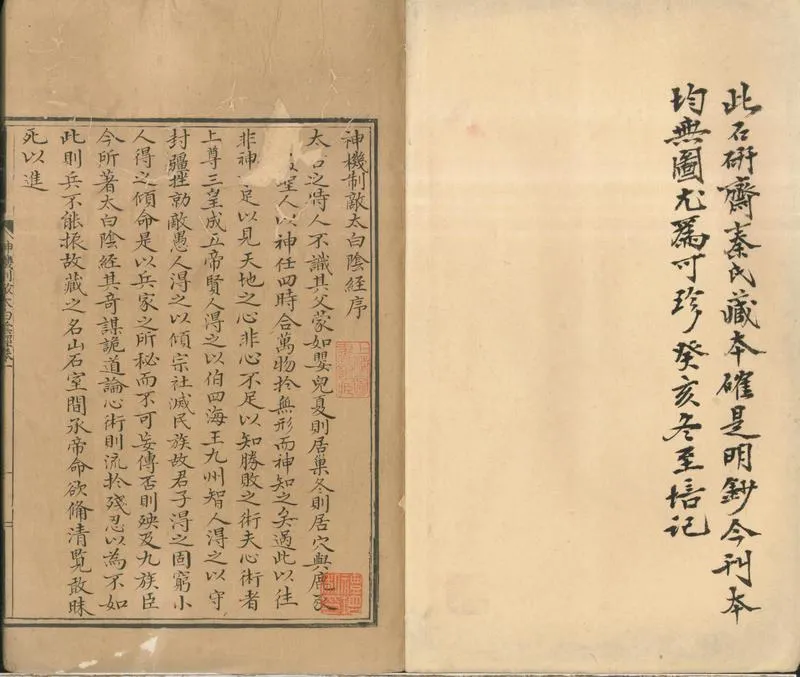 此石研齋秦氏藏本確是明鈔今刊本
均無圖尤爲可珍癸亥冬至培記
神機制敵太白陰經序
太古之時人不識其父蒙如嬰兒夏則居巢冬則居穴與鹿豕
聖人以神任四時合萬物於無形而神知之矣過此以往
非神足以見天地之心非心不足以知勝敗之術夫心術者
上尊三皇成五帝賢人得之以伯四海王九州智人得之以守
封疆挫勍敵愚人得之以傾宗社滅民族故君子得之固窮小
人得之傾命是以兵家之所秘而不可妄傳否則殃及九族臣
今所著太白陰經其奇謀詭道論心術則流於殘忍以為不如
此則兵不能振故藏之名山石室間承帝命欲俻清覽敢昧
死以進
神機制敵太白陰經卷一